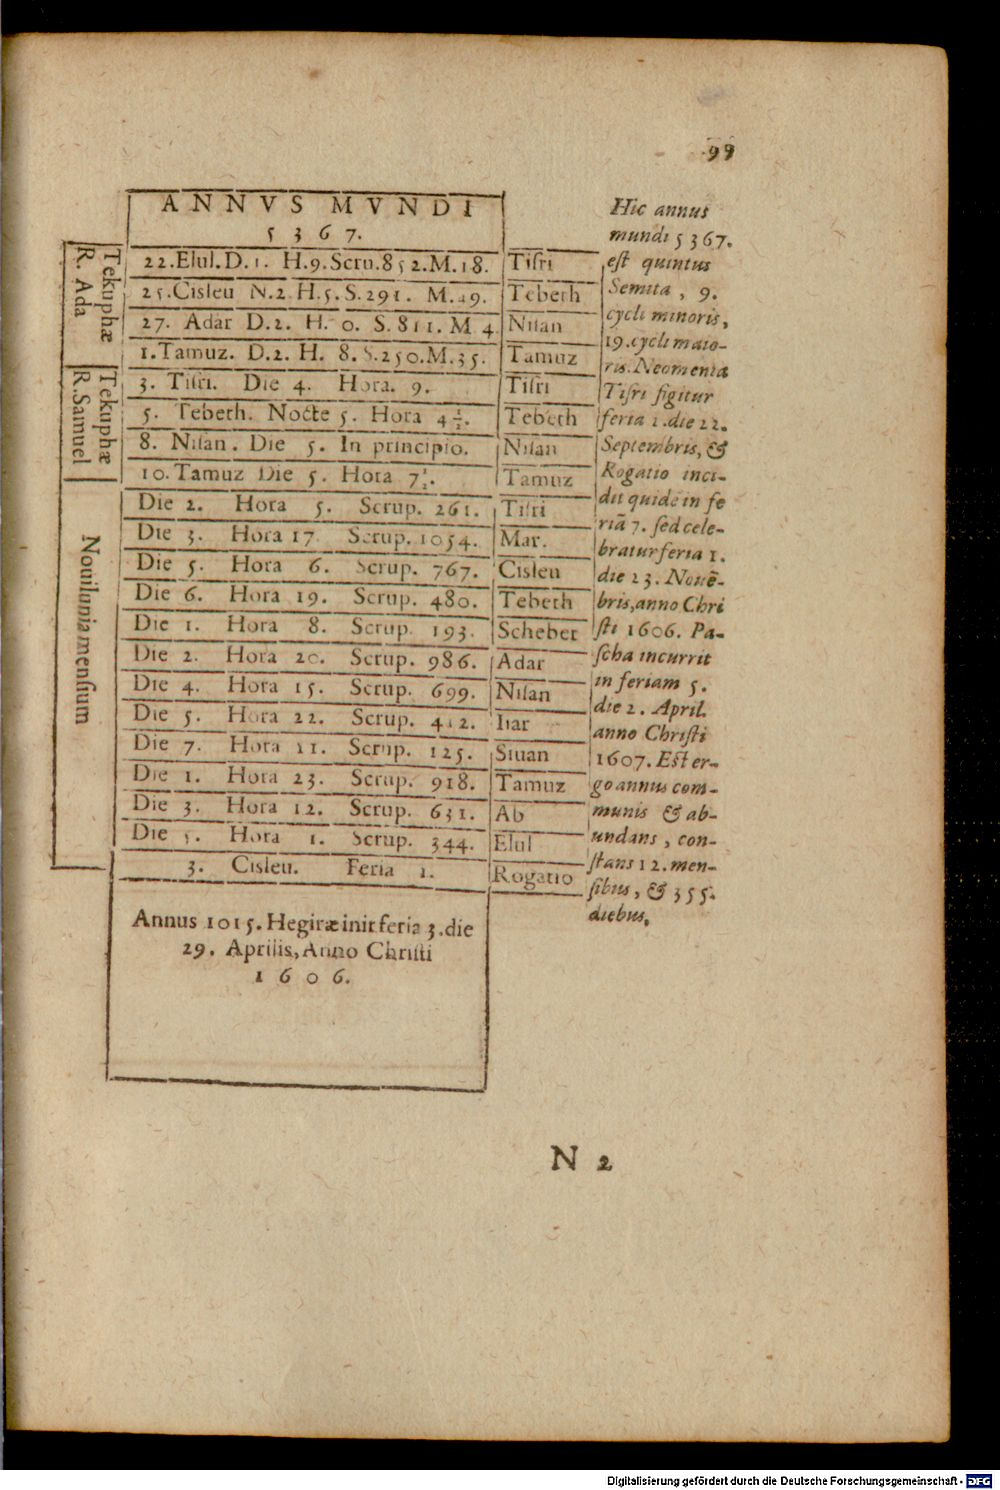 99
ANNVS MVNDI
5367.
Tekuphæ
R. Ada
22. Elul. D. 1. H. 9. Scru. 852. M. 18. Tisri
25. Cisleu N. 2 H. 5. S. 291. M. 49. Tebeth
27. Adar D. 2. H. 0. S. 811. M 4. Nisan
1. Tamuz. D. 2. H. 8. S. 250. M. 35. Tamuz
Tekuphæ
R. Samuel
3. Tisri. Die 4. Hora. 9. Tisri
5. Tebeth. Nocte 5. Hora 4 1/2. Tebeth
8. Nisan. Die 5. In principio. Nisan
10. Tamuz Die 5. Hora 7 1/2. Tamuz
Nouilunia mensium
Die 2. Hora 5. Scrup. 261. Tisri
Die 3. Hora 17. Scrup. 1054. Mar.
Die 5. Hora 6. Scrup. 767. Cisleu
Die 6. Hora 19. Scrup. 480. Tebeth
Die 1. Hora 8. Scrup. 193. Schebet
Die 2. Hora 20. Scrup. 986. Adar
Die 4. Hora 15. Scrup. 699. Nisan
Die 5. Hora 22. Scrup. 412. Iiar
Die 7. Hora 11. Scrup. 125. Siuan
Die 1. Hora 23. Scrup. 918. Tamuz
Die 3. Hora 12. Scrup. 631. Ab
Die 5. Hora 1. Scrup. 344. Elul
3. Cisleu. Feria 1. Rogatio
Annus 1015. Hegiræ init feria 3. die
29. Aprilis, Anno Christi
1606.
Hic annus
mundi 5367.
est quintus
Semita, 9.
cycli minoris,
19. cycli maio-
ris. Neomenia
Tisri figitur
feria 1. die 22.
Septembris, &
Rogatio inci-
dit quidẽ in fe
riã 7. sed cele-
bratur feria 1.
die 23. Nouẽ-
bris, anno Chri
sti 1606. Pa-
scha incurrit
in feriam 5.
die 2. April.
anno Christi
1607. Est er-
go annus com-
munis & ab-
undans, con-
stans 12. men-
sibus, & 355.
diebus.
N 2
Digitalisierung gefördert durch die Deutsche Forschungsgemeinschaft - DFG